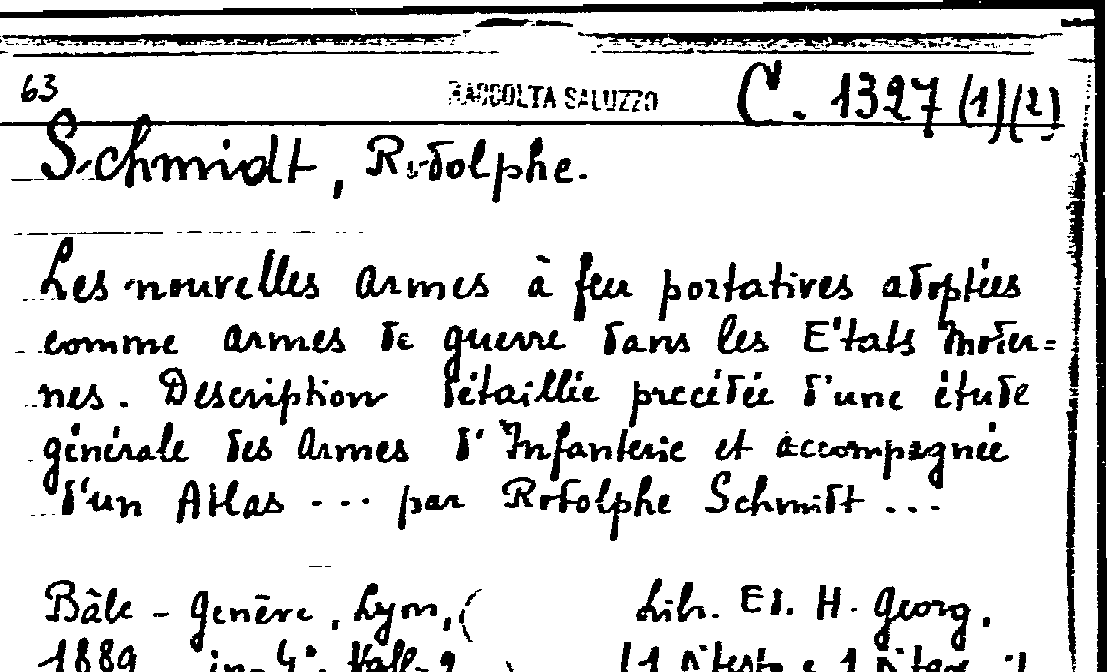 63 RACCOLTA SALUZZO C. 1327 (1)(2)
Schmidt, Rodolphe.
Les nouvelles armes à feu portatives adoptées
comme armes de guerre dans les Etats moder=
nes. Description détaillée precédée d'une étude
générale des armes d'Infanterie et accompagnée
d'un Atlas ... par Rodolphe Schmidt ...
Bâle - Genève, Lyon, (
Lib. Ed. H. Georg.
1889 in-4°.